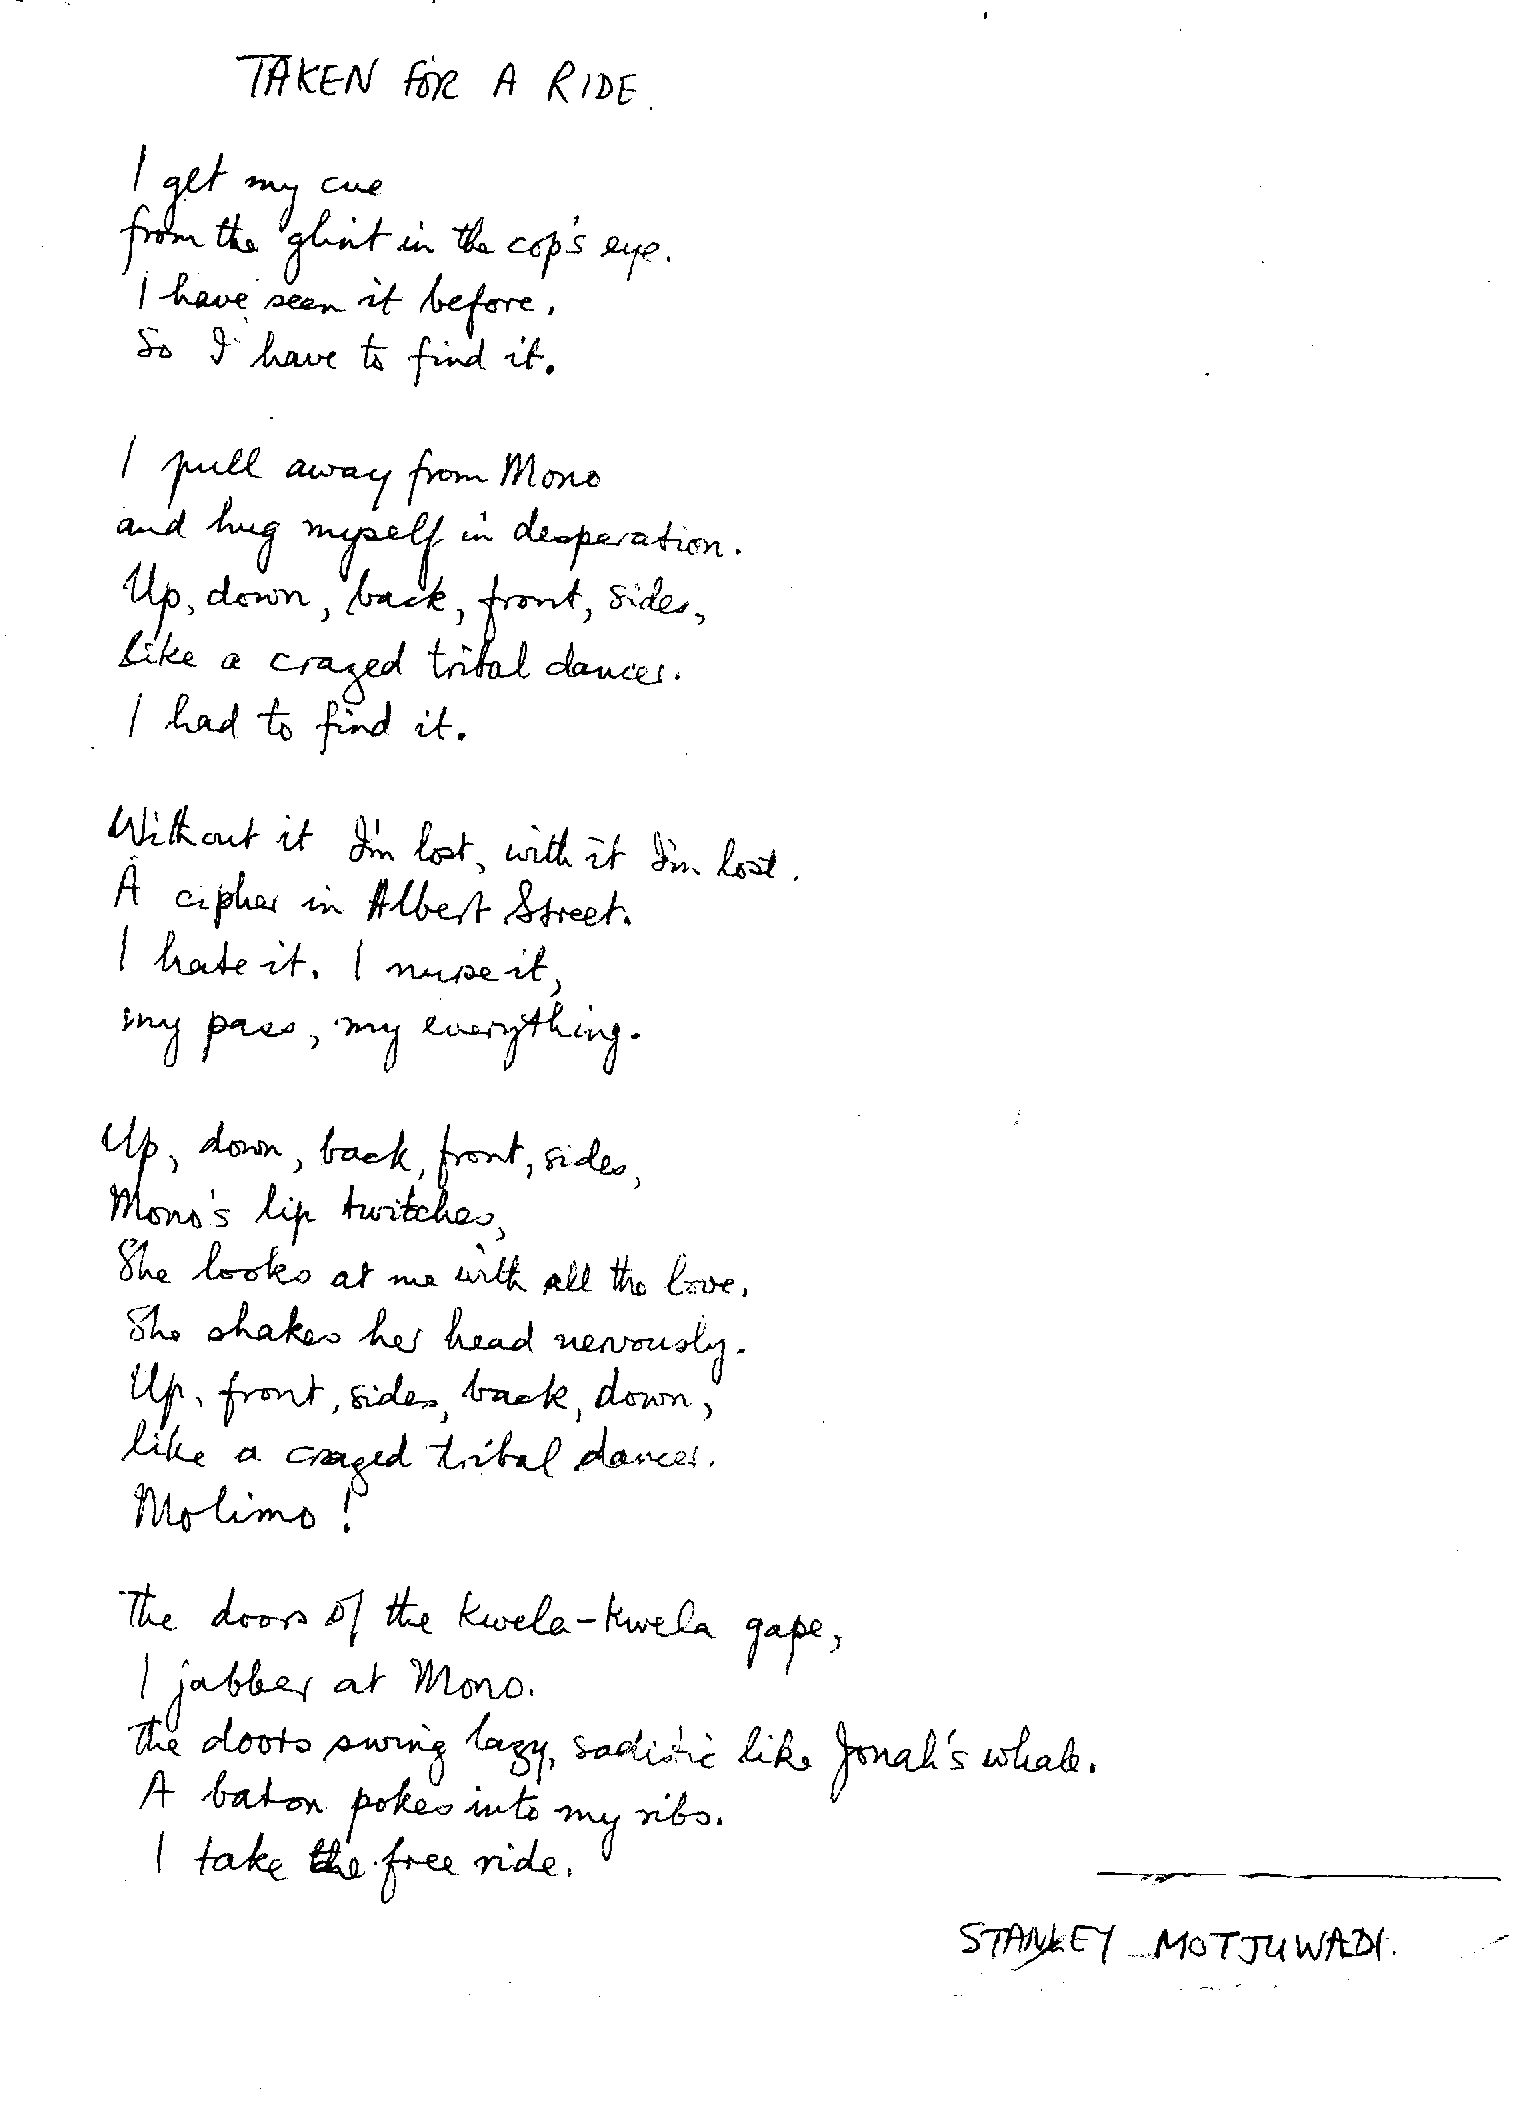 TAKEN FOR A RIDE.
I get my cue
from the glint in the cop's eye.
I have seen it before.
So I have to find it.
I pull away from Mono
and hug myself in desperation.
Up, down, back, front, sides,
like a crazed tribal dancer.
I had to find it.
Without it I'm lost, with it I'm lost.
A cipher in Albert Street.
I hate it. I nurse it,
my pass, my everything.
Up, down, back, front, sides,
Mono's lip twitches,
She looks at me with all the love.
She shakes her head nervously.
Up, front, sides, back, down,
like a crazed tribal dancer.
Molimo!
The doors of the kwela-kwela gape,
I jabber at Mono.
The doors swing lazy, sadistic like Jonah's whale.
A baton pokes into my ribs.
I take the free ride.
STANLEY MOTJUWADI.